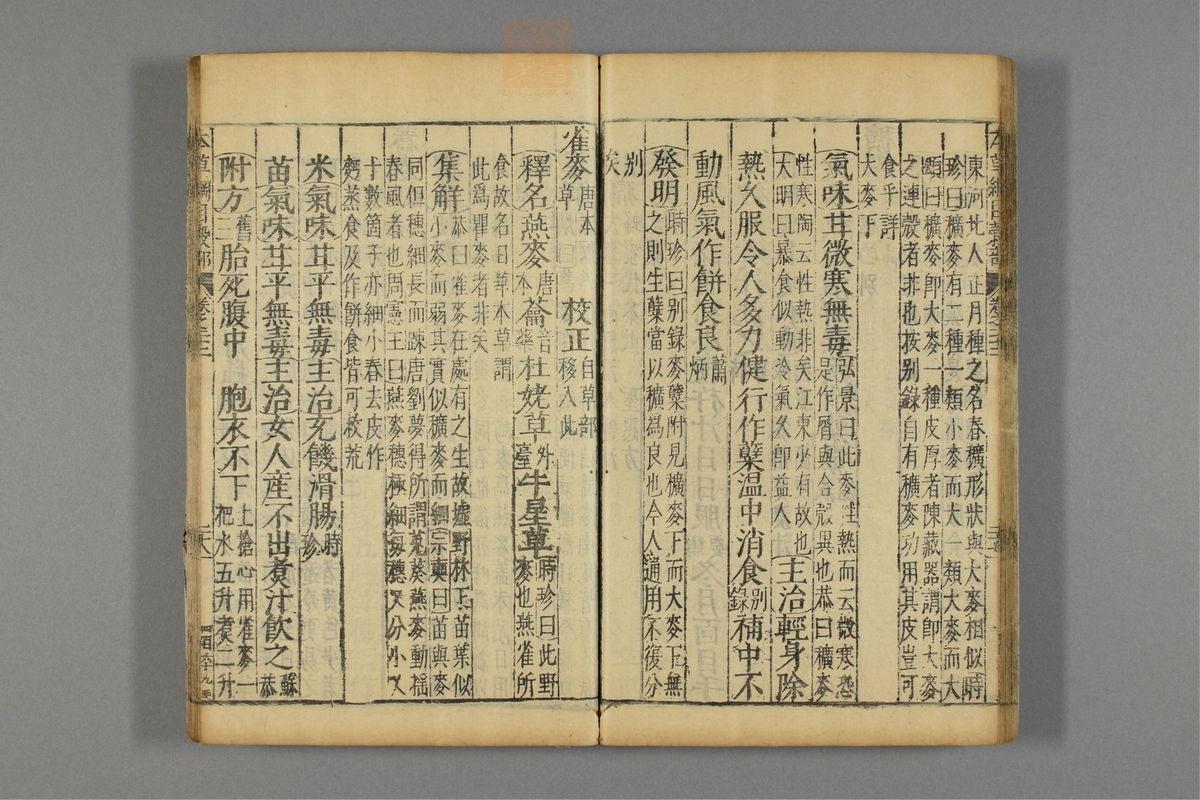 東河北人正月種之名春穬形狀與大麥相似時
珍曰穬麥有二種一類小麥而大一類大麥而大
頌曰穬麥即大麥一種皮厚者陳藏器謂即大麥
之連殼者非也按别錄自有穬麥功用其皮豈可
食乎詳
大麥下
氣味甘微寒無毒弘景曰此麥性熱而云微寒恐
是作屑與合殻異也恭曰穬麥
性寒陶云性熱非矣江東少有故也
大明曰暴食似動冷氣久即益人主治輕身除
熱久服令人多力健行作糵温中消食别錄補中不
動風氣作餅食良蕭炳
發明時珍曰别錄麥糵附見穬麥下而大麥下無
之則生糵當以穬爲良也今人通用不復分
别
矣
雀麥唐本草 校正自草部移入此
釋名燕麥唐本蘥音藥杜姥草外臺牛星草時珍曰此野
麥也燕雀所
食故名曰草本草謂
此爲瞿麥者非矣
集解恭曰雀麥在處有之生故墟野林下苗葉似
小麥而弱其實似穬麥而細宗奭曰苗與麥
同但穗細長而疎唐劉夢得所謂菟葵燕麥動揺
春風者也周憲王曰燕麥穗極細每穗又分小叉
十數箇子亦細小舂去皮作
麪蒸食及作餅食皆可救荒
米氣味甘平無毒主治充饑滑腸時珍
苗氣味甘平無毒主治女人産不出煮汁飲之蘇恭
附方舊三胎死腹中 胞水不下上搶心用雀麥一
把水五升煮二升
本草綱目穀部 卷之二十二